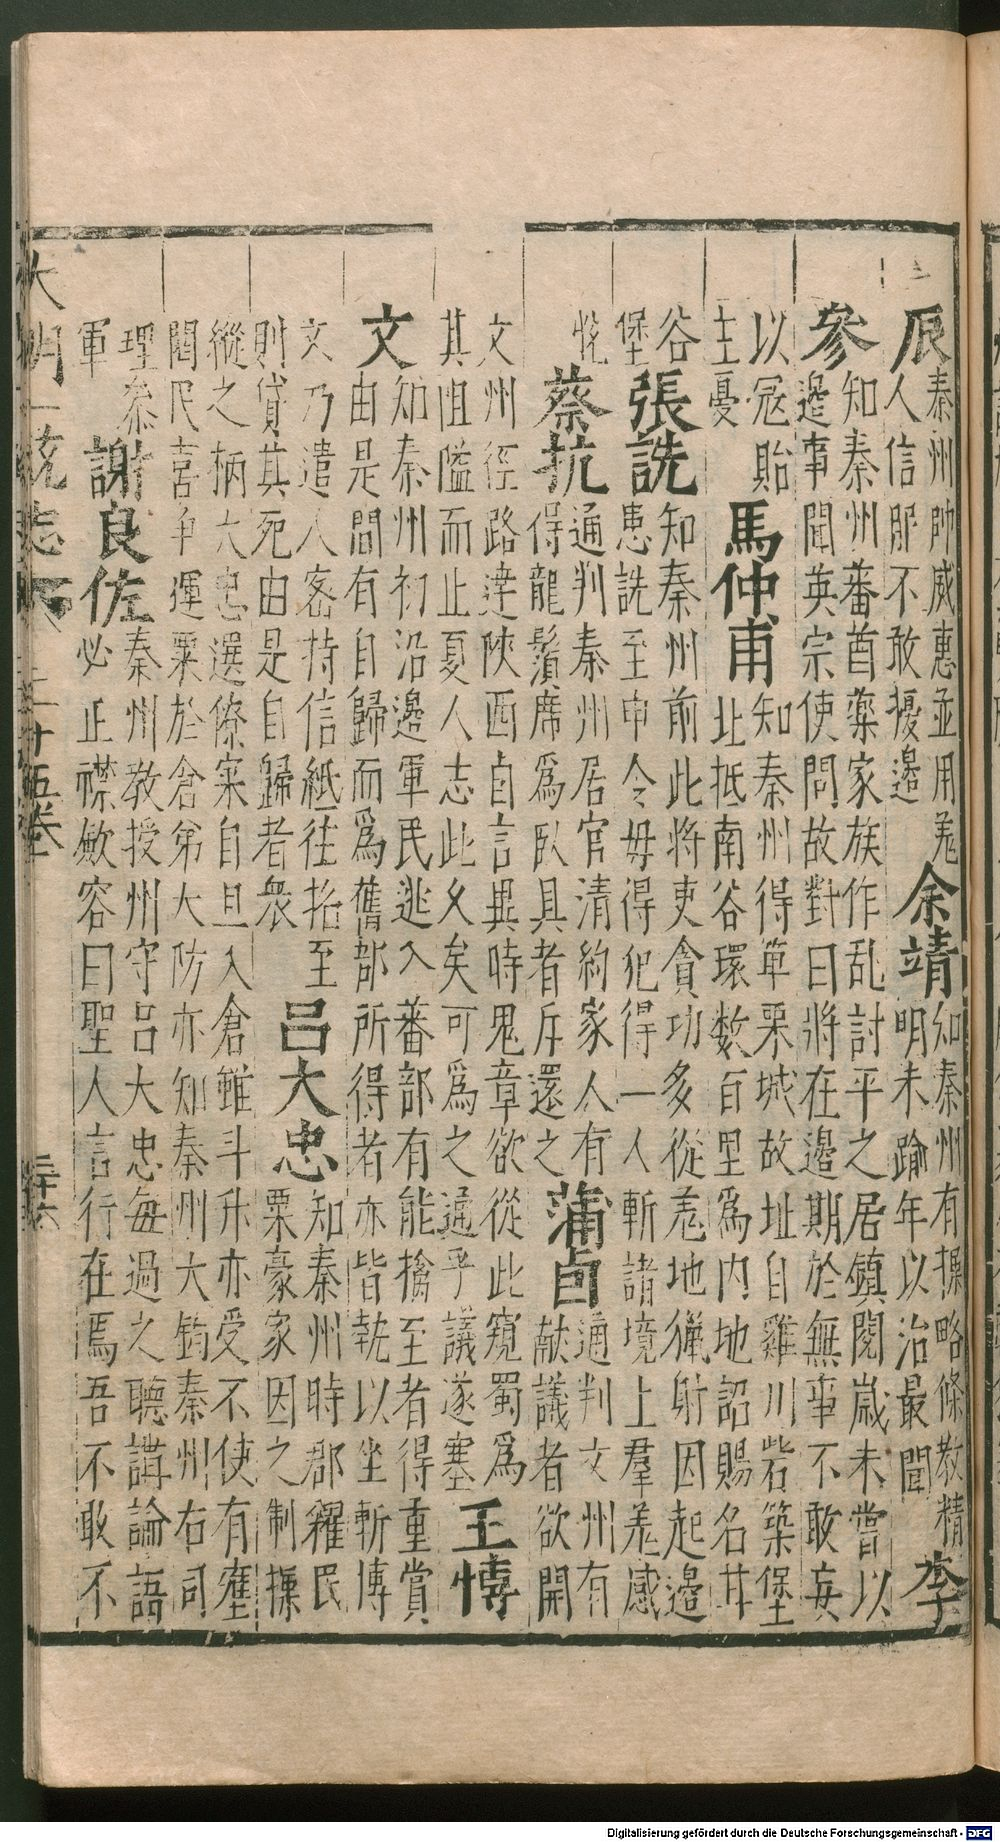 辰
秦州帥威惠並用羌
人信服不敢擾邊
余靖
知秦州有操略條教精
明未踰年以治最聞
李
參
知秦州蕃酋藥家族作乱討平之居鎮閱嵗未嘗以
邊事聞英宗使問故對曰將在邊期於無事不敢妄
以冦貽
主憂
馬仲甫
知秦州得箄栗城故址自雞川砦築堡
北抵南谷環數百里為内地詔賜名甘
谷
堡
張詵
知秦州前此將吏貪功多從羗地獵射因起邊
患詵至申令毋得犯得一人斬諸境上羣羌感
悅
蔡抗
通判秦州居官清約家人有
得龍鬚席爲臥具者斥還之
蒲卣
通判文州有
献議者欲開
文州徑路達陝西卣言異時鬼章欲從此窺蜀爲
其阻隘而止夏人志此乆矣可爲之通乎議遂塞
王博
文
知秦州初沿邊軍民逃入蕃部有能擒至者得重賞
由是間有自歸而爲舊部所得者亦皆執以坐斬博
文乃遣人密持信紙往招至
則貸其死由是自歸者衆
呂大忠
知秦州時郡糴民
粟豪家因之制操
縱之柄大忠選僚寀自旦入倉雖斗升亦受不使有壅
閼民喜争運粟於倉第大防亦知秦州大鈞秦州右司
理叅
軍
謝良佐
秦州教授州守呂大忠每過之聽講論語
必正襟斂容曰聖人言行在焉吾不敢不
大明一統志
三十五卷
三十六
Digitalisierung gefördert durch die Deutsche Forschungsgemeinschaft - DFG